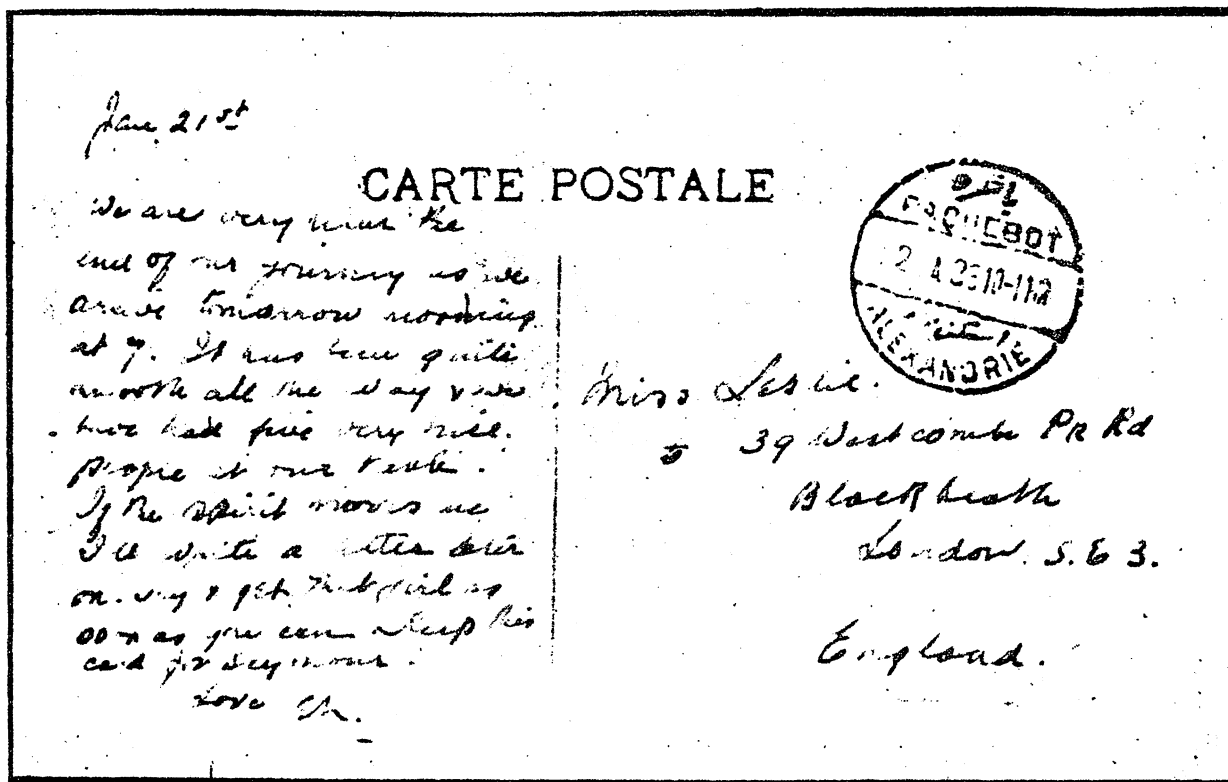 Jan. 21st
CARTE POSTALE
We are very near the
end of our journey as we
arrive tomorrow morning
at 7. It has been quite
smooth all the way & we
have had five very nice
people at our table.
If the spirit moves me
I'll write a letter later
on. Try & get that girl as
soon as you can & keep this
card for Seymour.
Love
PAQUEBOT
ALEXANDRIE
Miss Leslie.
39 Westcombe Pk Rd
Blackheath
London. S.E 3.
England.